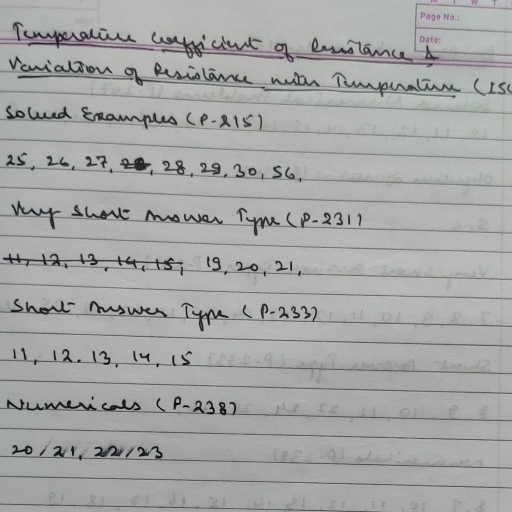 Page No.:
Date:
Temperature coefficient of Resistance &
Variation of Resistance with Temperature (ISC
Solved Examples (P-215)
25, 26, 27, 28, 29, 30, 56,
Very Short Answer Type (P-231)
11, 12, 13, 14, 15, 19, 20, 21,
Short Answer Type (P-233)
11, 12. 13, 14, 15
Numericals (P-238)
20, 21, 22, 23